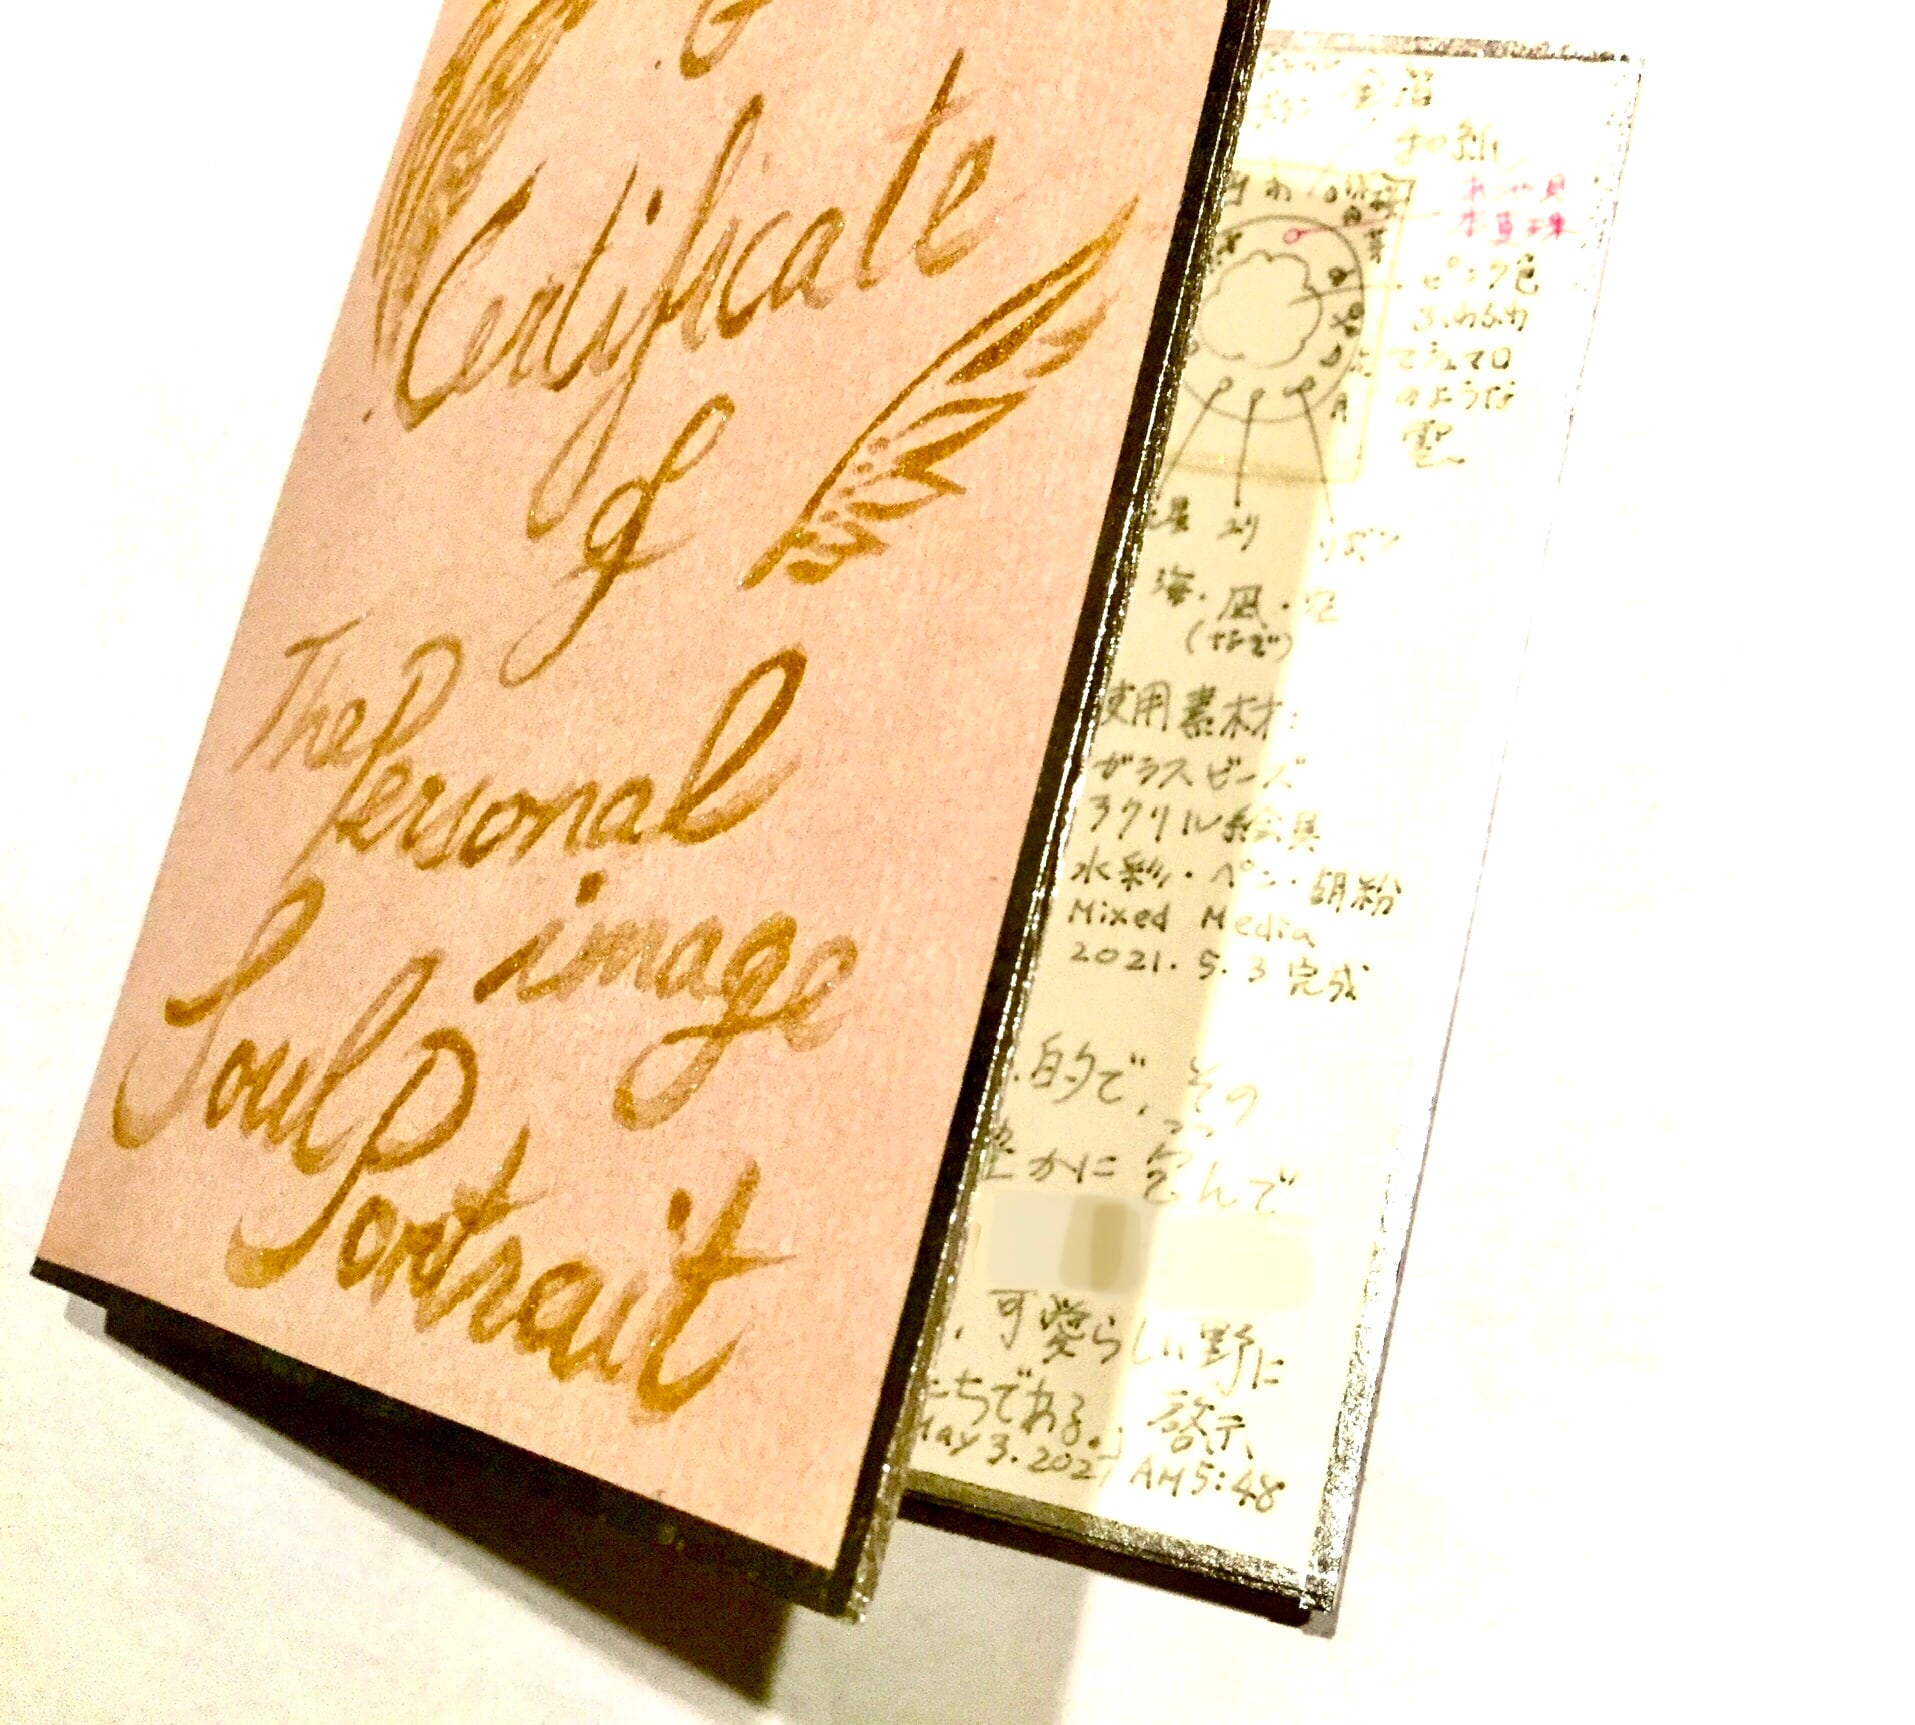 Certificate
of
The Personal
image
Soul Portrait
金箔
和紙
本真珠
ピンク色
ふわふわ
マシュマロ
のような
雲
海・凪・空
(なぎ)
使用素材:
ガラスビーズ
アクリル絵具
水彩・ペン・胡粉
Mixed Media
2021.5.3 完成
的で、その
かに包んで
可愛らしい野に
たちである。」啓示、
May 3. 2021 AM5:48